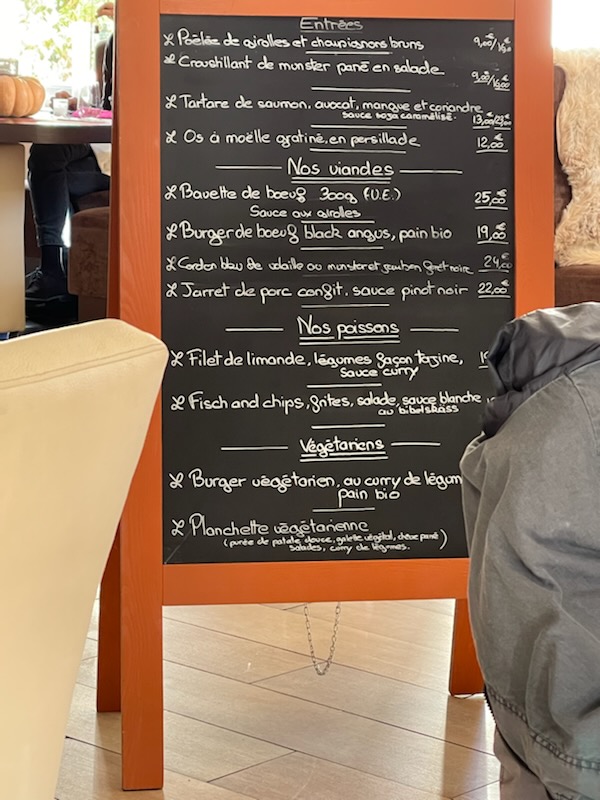 Entrées
Poêlée de girolles et champignons bruns 9,00€/16,00
Croustillant de munster pané en salade 9,00€/16,00€
Tartare de saumon, avocat, mangue et coriandre
sauce soja caramélisé. 13,00€/23,00€
Os à moëlle gratiné, en persillade 12,00€
Nos viandes
Bavette de boeuf 300g (U.E.) 25,00€
Sauce aux girolles
Burger de boeuf black angus, pain bio 19,00€
Cordon bleu de volaille au munster et jambon forêt noire 24,00€
Jarret de porc confit, sauce pinot noir 22,00€
Nos poissons
Filet de limande, légumes façon terrine,
sauce curry
Fisch and chips, frites, salade, sauce blanche
au bibelskäss
Végétariens
Burger végétarien, au curry de légum
pain bio
Planchette végétarienne
(purée de patate douce, galette végétal, chèvre pané)
salades, curry de légumes.